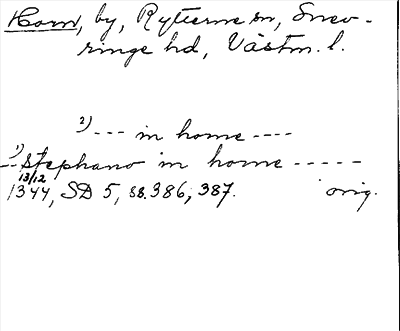 Horn, by, Rytterne sn, Snev-
ringe hd, Västm. l.
2) --- in horne ----
1) -- Stephano in horne -----
13/12
1344, SD 5, ss. 386, 387. orig.